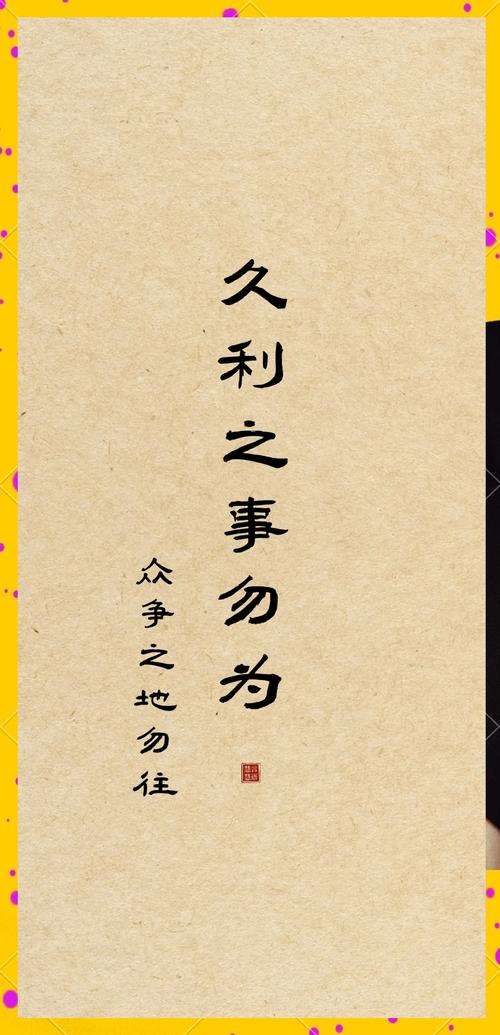 久利之事勿为
众争之地勿往